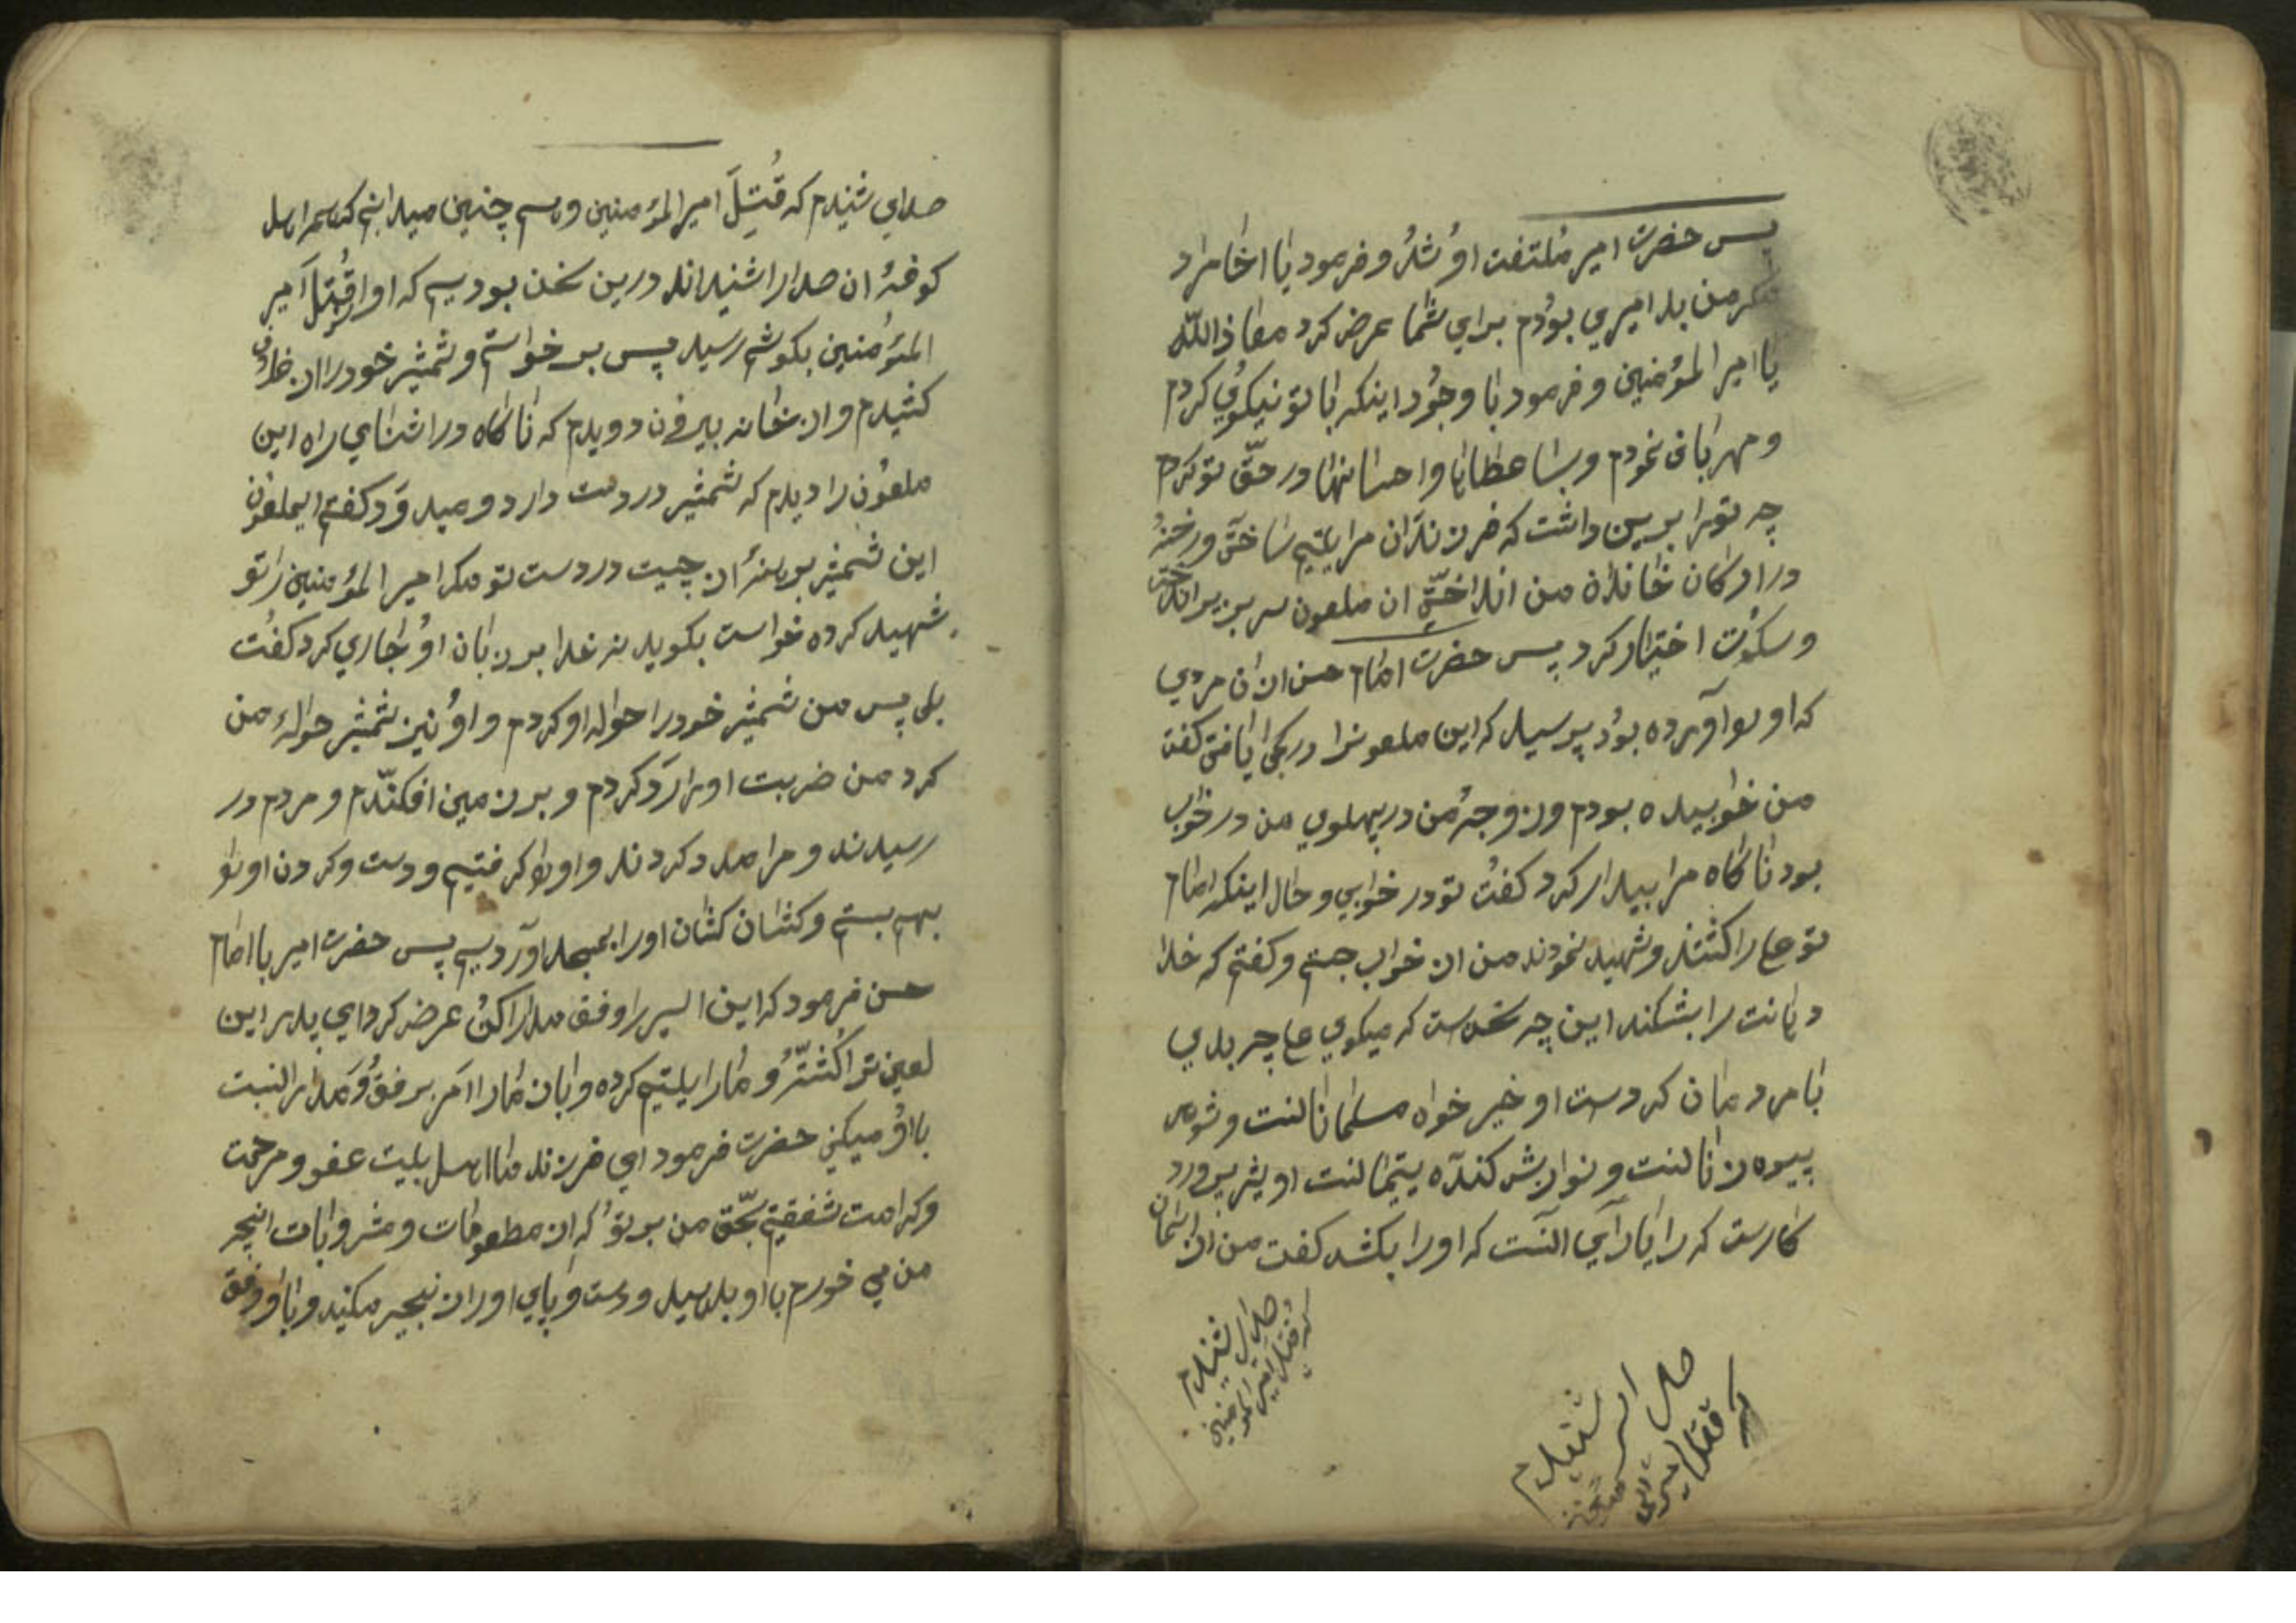 پس حضرت امیر ملتفت او شد و فرمود یا اخا مراد
مکر من بد امیری بودم برای شما عرض کرد معاذ الله
یا امیر المؤمنین و فرمود با وجود اینکه با تو نیکوی کردم
و مهربانی نمودم و بسا عطایا و احسانها در حق تو کردم
چه تو را برین داشت که فرزندان مرا یتیم ساختی و رخنه
در ارکان خانده من انداختی ان ملعون سر بزیر انداخت
و سکوت اختیار کرد پس حضرت امام حسن از ان مردی
که او را آورده بود پرسید که این ملعونرا در کجا یافتی کفت
من خوابیده بودم و زوجه من در پهلوی من در خواب
بود ناکاه مرا بیدار کرد کفت تو در خوابی و حال اینکه امام
تو علی را کشتند و شهید نمودند من از خواب جستم و کفتم که خدا
دهانت را بشکند این چه سخن است که میکوی علی چه بدی
با مردمان کردست او خیر خواه مسلمانانست و شوهر
بیوه زنانست و نوازش کننده یتیمانست او
کارست که را یارای آنست که او را بکشد کفت من از اسمان
صدای شنیدم
که قتل امیر المؤمنین
صدای شنیدم
که قتل امیر
صدای شنیدم که قتل امیر المؤمنین و چنین میدانم که اهل
کوفه ان صدا را شنیده اند درین سخن بودیم که اواز قتل امیر
المؤمنین بکوشم رسید پس بر خواستم و شمشیر خود را از غلاف
کشیدم و از خانه بیرون دویدم که ناکاه در اثنای راه این
ملعون را دیدم که شمشیر در دست دارد و میدود کفتم ایملعون
این شمشیر برهنه از چیست در دست تو مکر امیر المؤمنین را تو
شهید کرده خواست بکوید نه خدا بر زبان او جاری کرد کفت
بلی پس من شمشیر خود را حواله او کردم و او نیز شمشیر حواله من
کرد من ضربت او را رد کردم و بر زمین افکندم و مردم در
رسیدند و مرا مدد کردند و او را کرفتیم و دست و کردن او را
بهم بستم و کشان کشان او را بمسجد آوردیم پس حضرت امیر با امام
حسن فرمود که این اسیر را وفق مدارا کن عرض کرد ای پدر این
لعین ترا کشته و مارا یتیم کرده و باز مارا امر برفق و مدارا نسبت
باو میکنی حضرت فرمود ای فرزند ما اهل بیت عفو و مرحمت
و کرامت شفقتیم بحق من بر تو که از مطعومات و مشروبات انچه
من می خورم باو بدهید و دست و پای او را زنجیر مکنید و با او رفق